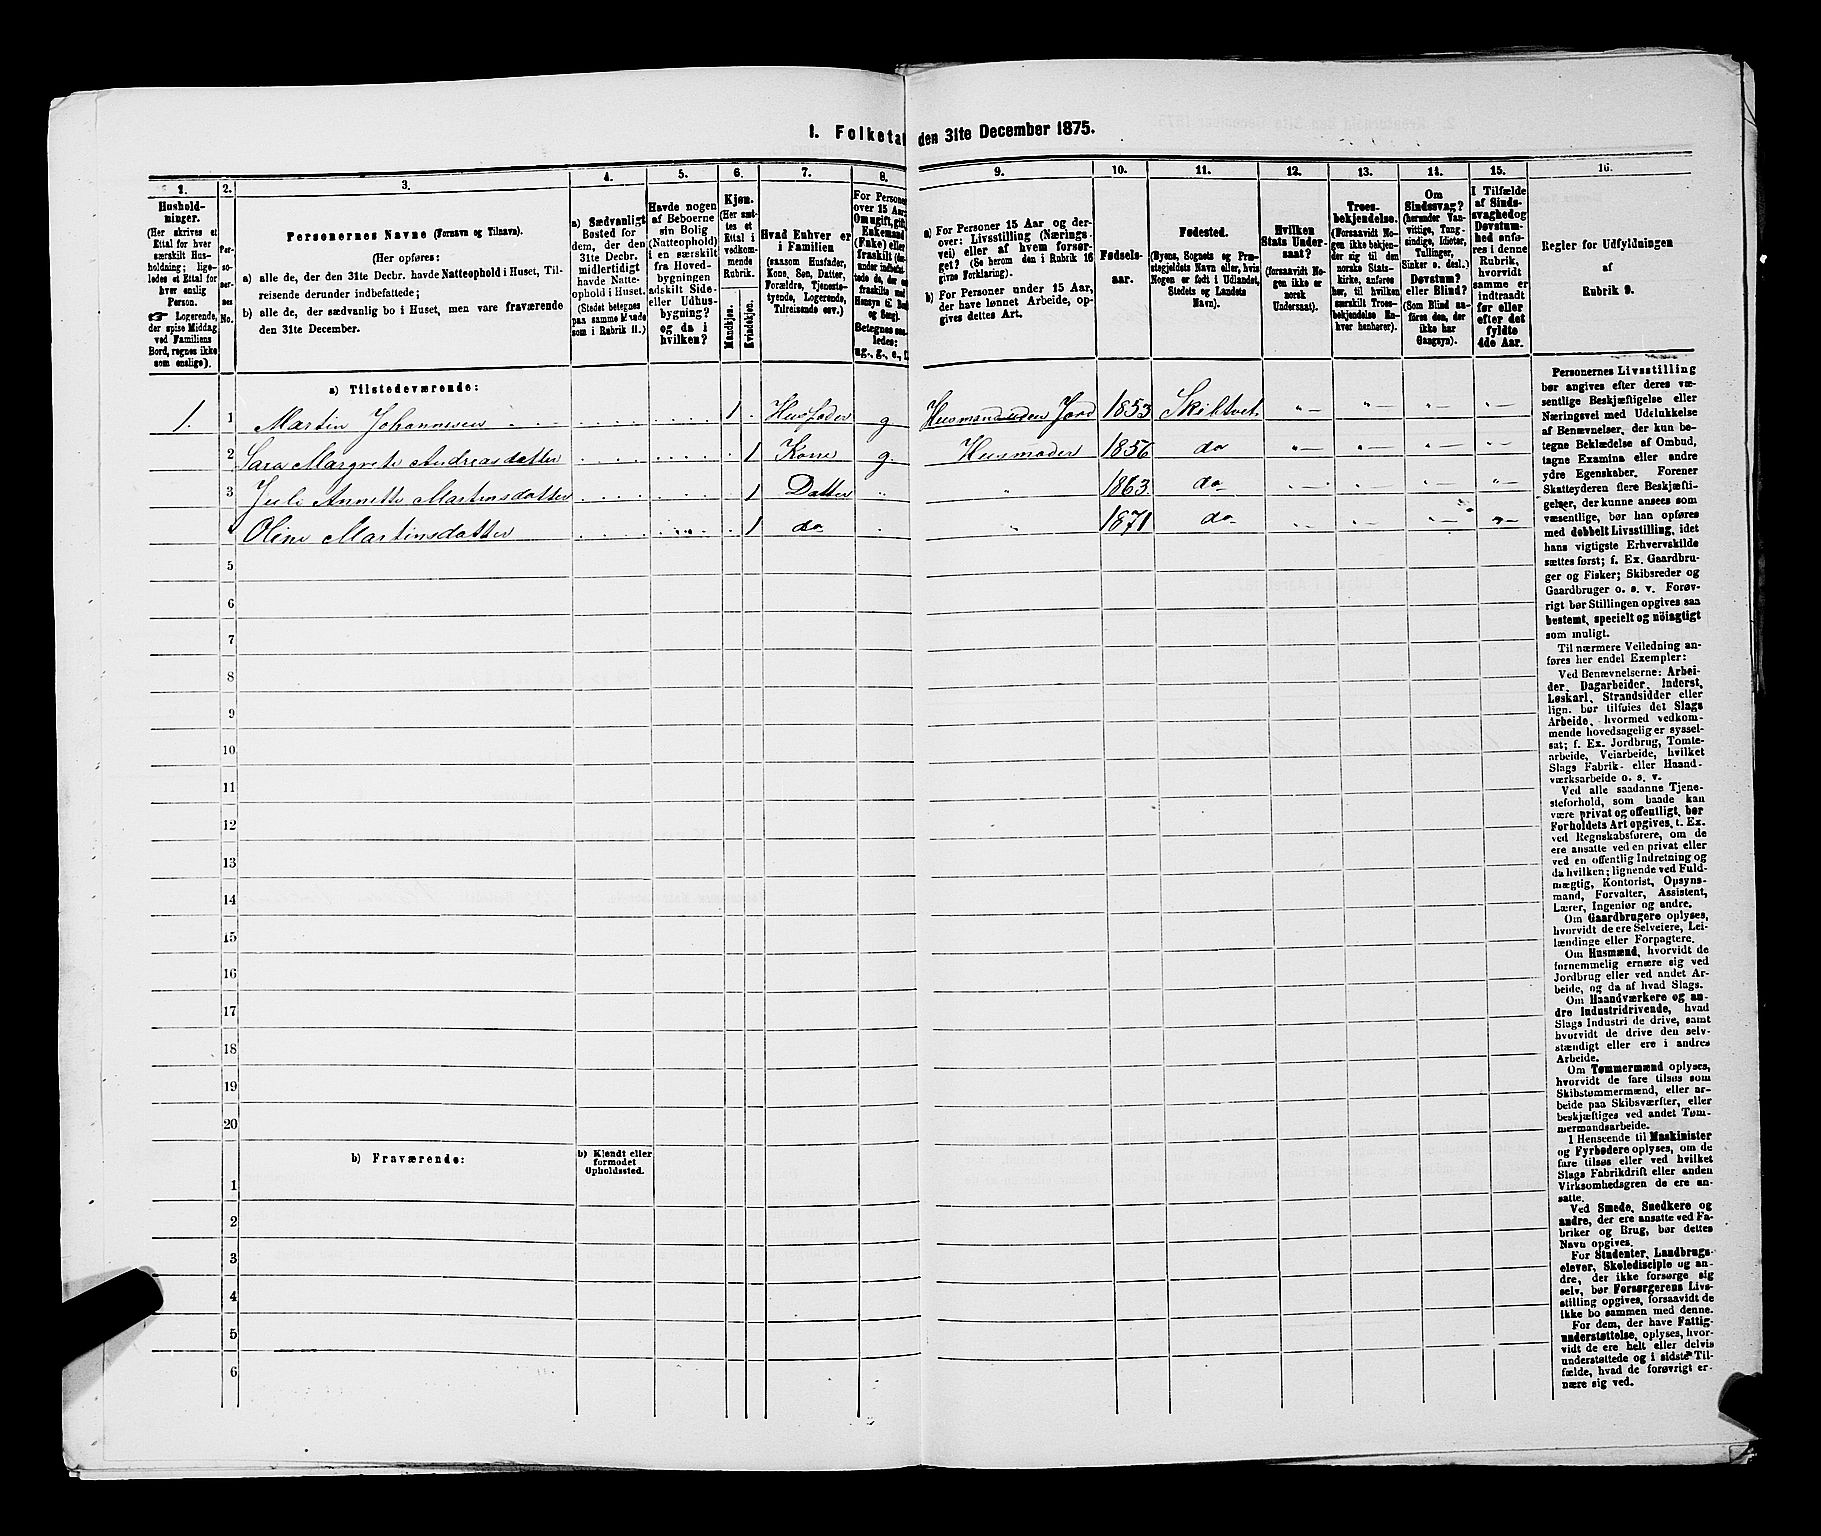 1. Folketal den 31te December 1875.
1.
2.
3.
4.
5.
6.
7.
8.
9.
10.
11.
12.
13.
14.
15.
16.
Hushold-
ninger.
(Her skrives et
Ettal for hver
særskilt Hus-
holdning; lige-
ledes et Ettal for
hver enslig
Person.
☞ Logerende,
der spise Middag
ved Familiens
Bord, regnes ikke
som enslige).
Per-
so-
ner-
nes
No.
Personernes Navne (Fornavn og Tilnavn).
(Her opføres:
a) alle de, der den 31te Decbr. havde Natteophold i Huset, Til-
reisende derunder indbefattede;
b) alle de, der sædvanlig bo i Huset, men vare fraværende
den 31te December.
a) Sædvanligt
Bosted for
dem, der den
31te Decbr.
midlertidigt
havde Natte-
ophold i Huset.
(Stedet betegnes
paa samme Maade
som i Rubrik 11.)
Havde nogen
af Beboerne
sin Bolig
(Natteophold)
i en særskilt
fra Hoved-
bygningen
adskilt Side-
eller Udhus-
bygning?
og da i
hvilken?
Kjøn.
(Her sæt-
tes et
Ettal i
vedkom-
mende
Rubrik.
Mandkjøn.
Kvindekjøn.
Hvad Enhver er
i Familien
(saasom Husfader,
Kone, Søn, Datter,
Forældre, Tjeneste-
tyende, Logerende,
Tilreisende osv.)
For Personer
over 15 Aar:
Om ugift, gift,
Enkemand
(Enke) eller
fraskilt
Betegnes saa-
ledes:
ug., g., e., f.
a) For Personer 15 Aar og der-
over: Livsstilling (Nærings-
vei) eller af hvem forsør-
get? (Se herom den i Rubrik 16
givne Forklaring).
b) For Personer under 15 Aar,
der have lønnet Arbeide, op-
gives dettes Art.
Fødsels-
aar.
Fødested.
(Byens, Sognets og Præ-
stegjeldets Navn eller, hvis
Nogen er født i Udlandet,
Stedets og Landets
Navn).
Hvilken
Stats Under-
saat?
(forsaavidt No-
gen ikke er
norsk
Undersaat).
Troes-
bekjendelse.
(Forsaavidt No-
gen ikke bekjen-
der sig til den
norske Stats-
kirke, anføres
her, til hvilken
særskilt Troes-
bekjendelse En-
hver henhører).
Om
Sindssvag?
(herunder Van-
vittige, Tung-
sindige, Idioter,
Tullinger,
Sinker o. desl.)
Døvstum?
eller Blind?
(Som Blind an-
føres den, der
ikke har
Gangsyn).
I Tilfælde
af Sinds-
svaghed og
Døvstum-
hed anfø-
res i denne
Rubrik,
hvorvidt
samme er
indtraadt
før eller
efter det
fyldte
4de Aar.
Regler for Udfyldningen
af
Rubrik 9.
a) Tilstedeværende:
1. 1 Martin Johannesen 1 Husfader g Husmand uden Jord 1853 Skibtvet
2 Sara Margrete Andreasdatter 1 Kone g. Husmoder 1856 do
3 Juli Annette Martinsdatter 1 Datter 1863. do
4 Oline Martinsdatter 1 do 1871 do
5
6
7
8
9
10
11
12
13
14
15
16
17
18
19
20
b) Fraværende:
b) Kjendt eller
formodet
Opholdssted.
1
2
3
4
5
6
Personernes Livsstilling
bør angives efter deres væ-
sentlige Beskjæftigelse eller
Næringsvei med Udelukkelse
af Benævnelser, der kun be-
tegne Beklædelse af Ombud,
tagne Examina eller andre
ydre Egenskaber. Forener
Skatteyderen flere Beskjæfti-
gelser, der kunne ansees som
væsentlige, bør han opføres
med dobbelt Livsstilling, idet
hans vigtigste Erhvervskilde
sættes først; f. Ex. Gaardbru-
ger og Fisker; Skibsreder og
Gaardbruger o. s. v. Forøv-
rigt bør Stillingen opgives saa
bestemt, specielt og nöiagtigt
som muligt.
Til nærmere Veiledning an-
føres her endel Exempler:
Ved Benævnelserne: Arbei-
der, Dagarbeider, Inderst,
Løskarl, Strandsidder eller
lign. bør tilføies det Slags
Arbeide, hvormed vedkom-
mende hovedsagelig er syssel-
sat; f. Ex. Jordbrug, Tomte-
arbeide, Veiarbeide, hvilket
Slags Fabrik- eller Haand-
værksarbeide o. s. v.
Ved alle saadanne Tjene-
steforhold, som baade kan
være privat og offentligt, bør
Forholdets Art opgives, f. Ex.
ved Regnskabsførere, om de
ere ansatte ved en privat eller
ved en offentlig Indretning og
da hvilken; lignende ved Fuld-
mægtig, Kontorist, Opsyns-
mand, Forvalter, Assistent,
Lærer, Ingeniør og andre.
Om Gaardbrugere oplyses,
hvorvidt de ere Selveiere, Lei-
lændinge eller Forpagtere.
Om Husmænd, hvorvidt de
fornemmelig ernære sig ved
Jordbrug eller ved andet Ar-
beide, og da af hvad Slags.
Om Haandværkere og an-
dre Industridrivende, hvad
Slags Industri de drive, samt
hvorvidt de drive den selv-
stændigt eller ere i andres
Arbeide.
Om Tømmermænd oplyses,
hvorvidt de fare tilsøs som
Skibstømmermænd, eller ar-
beide paa Skibsværfter, eller
beskjæftiges ved andet Tøm-
mermandsarbeide.
I Henseende til Maskinister
og Fyrbødere oplyses, om de
fare tilsøs eller ved hvilket
Slags Fabrikdrift eller anden
Virksomhedsgren de ere an-
satte.
Ved Smede, Snedkere og
andre, der ere ansatte ved Fa-
briker og Brug, bør dettes
Navn opgives.
For Studenter, Landbrugs-
elever, Skoledisciple og an-
dre, der ikke forsørge sig
selv, bør Forsørgerens Livs-
stilling opgives, forsaavidt de
ikke bo sammen med denne.
For dem, der have Fattig-
understøttelse, oplyses, hvor-
vidt de ere helt eller delvis
understøttede og i sidste Til-
fælde, hvad de forøvrigt er-
nære sig ved.